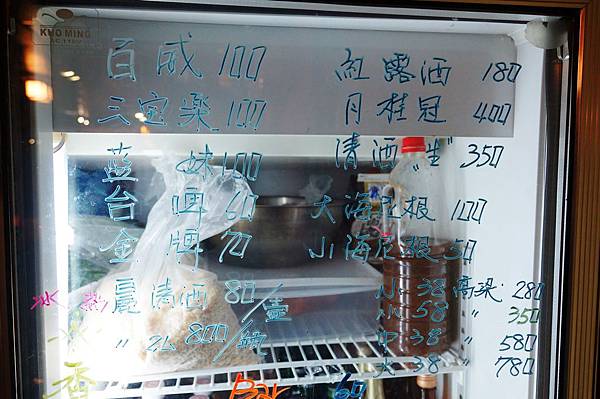 KUO MING
百威 100
三宝楽 100
藍妹 100
台啤 60
金牌 70
冰 熱 晨清酒 80/壺
〃 2L 800/瓶
香
Bar 60
紅露酒 180
月桂冠 400
清酒"生" 350
大海尼根 100
小海尼根 50
小 38 高粱 280
小 58 〃 350
中 38 〃 580
大 38 〃 780